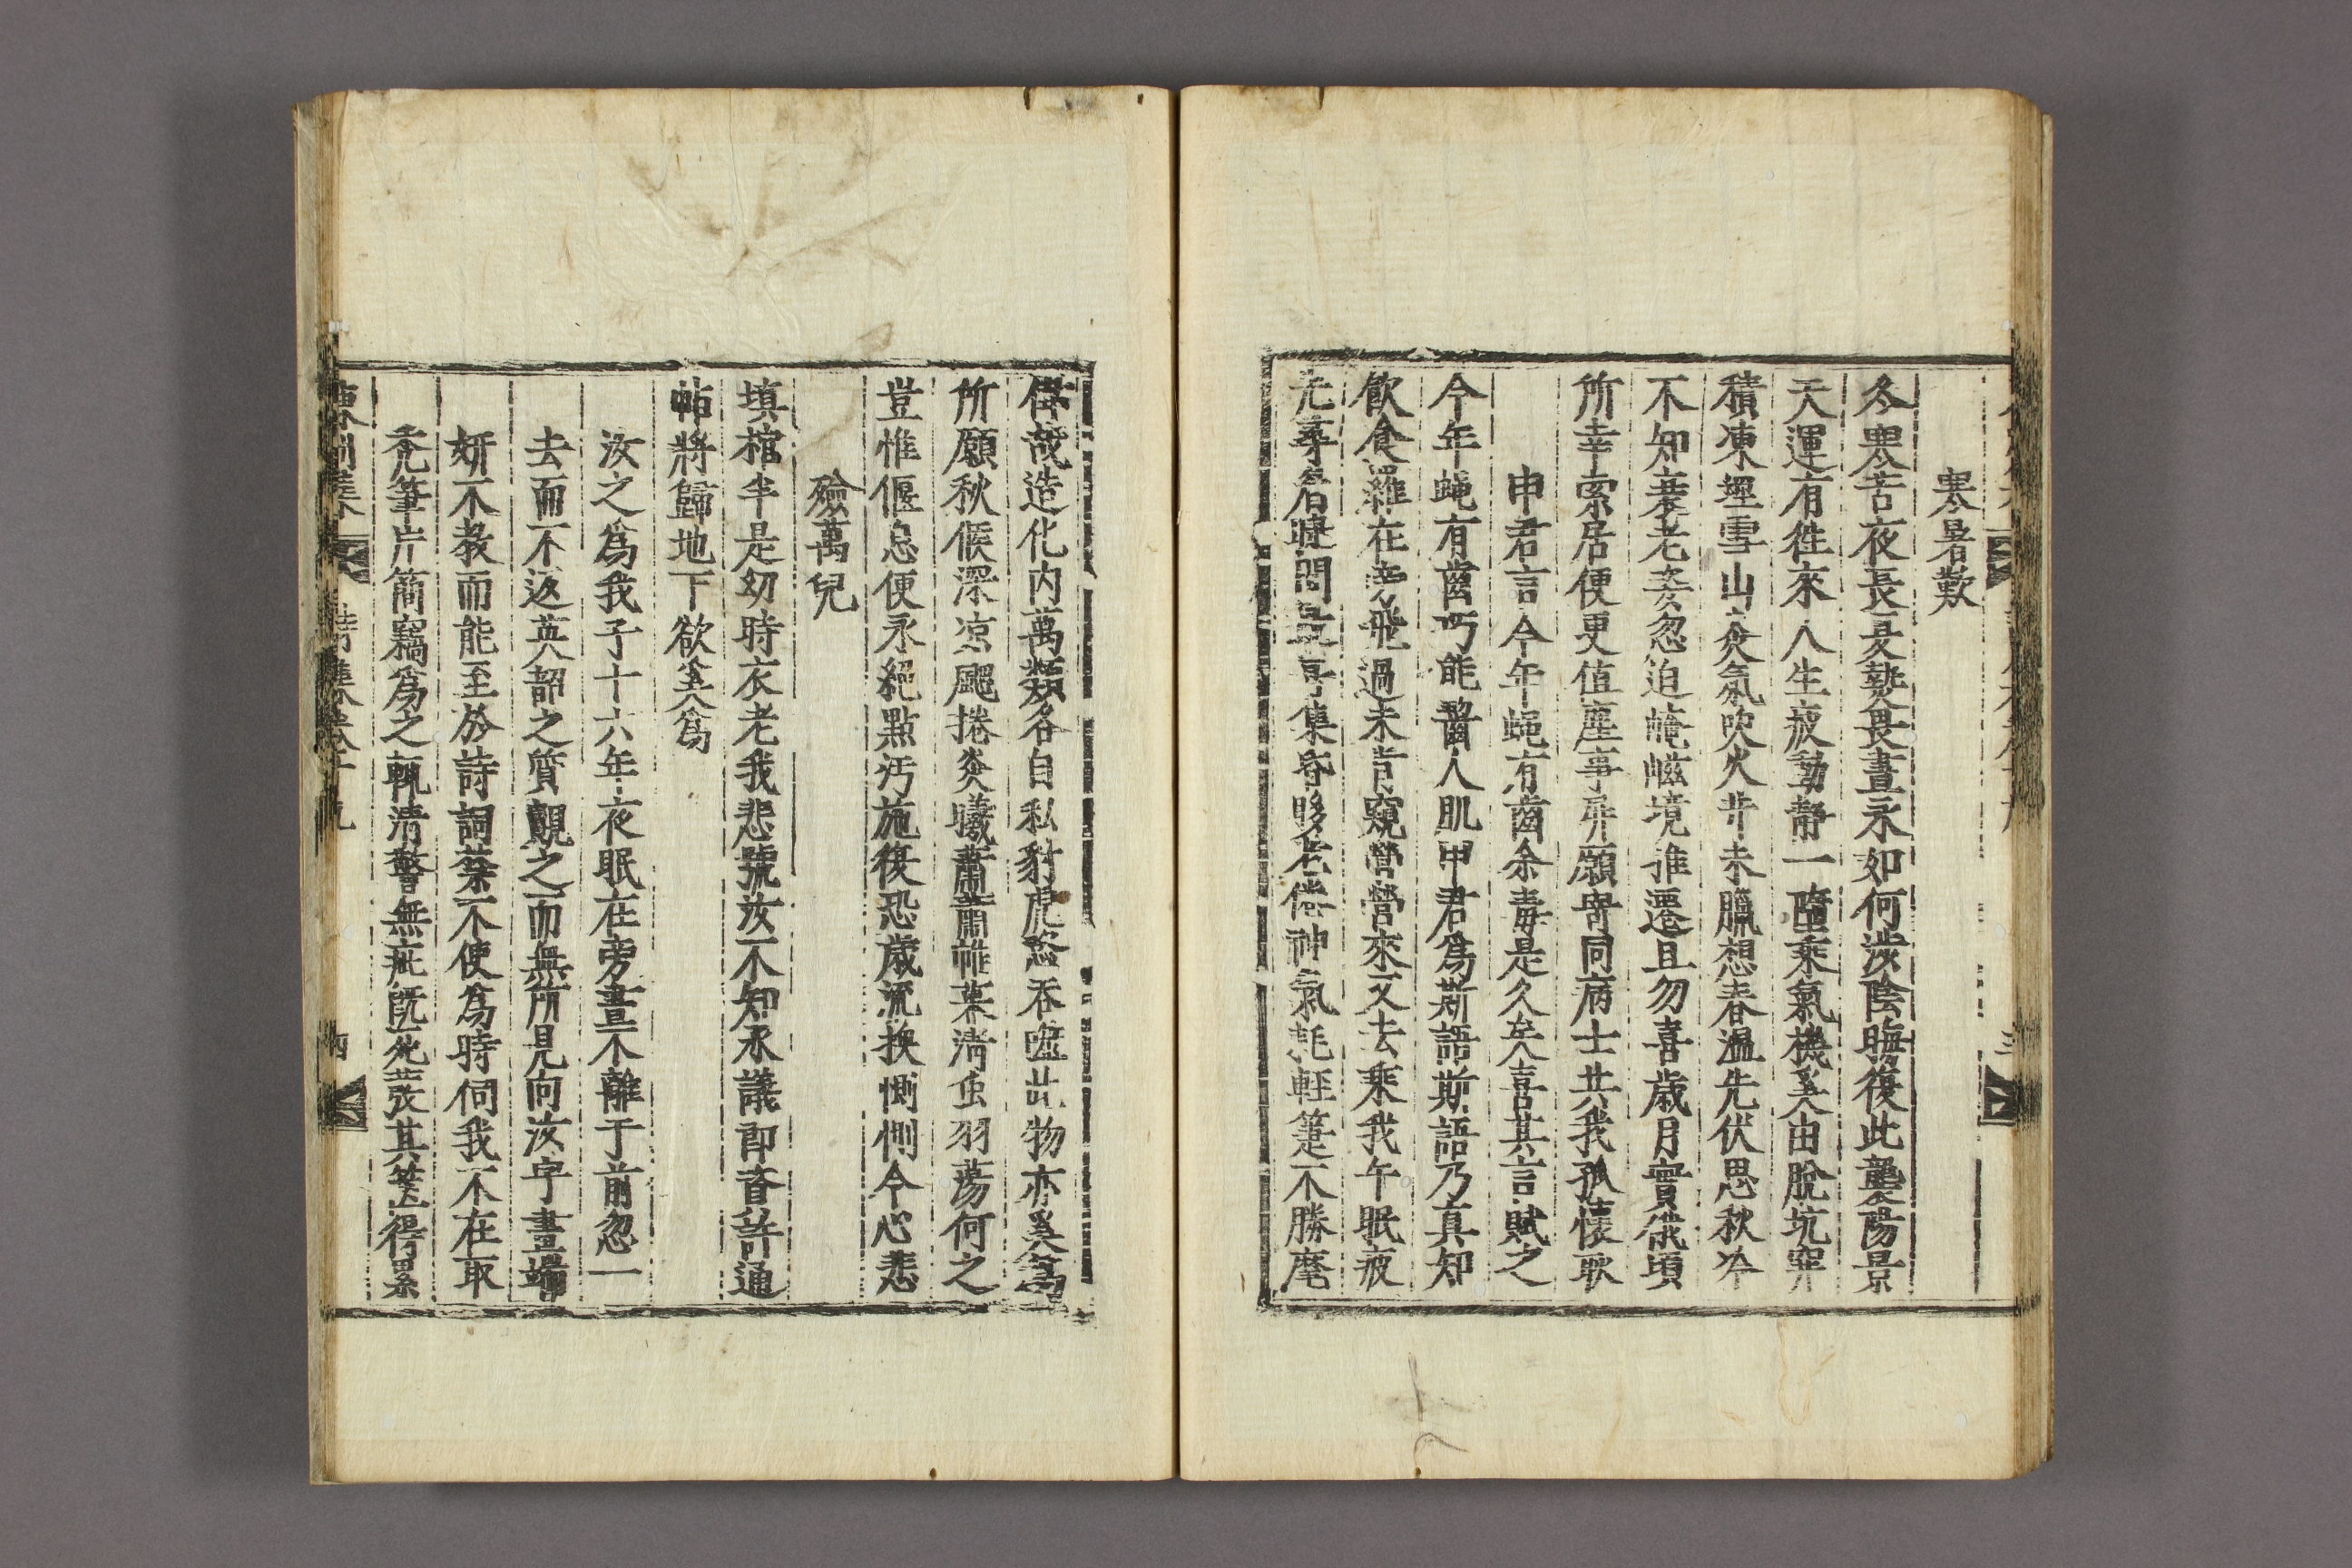 寒暑歎
冬寒苦夜長夏熱畏晝永如何涉陰晦復此襲陽景
天運有徃來人生疲動靜一墮乘氣機奚由脫坑穽
積凍埋雪山炎氣吹火井未臘想春溫先伏思秋冷
不知衰老妄忽迫崦嵫境推遷且勿喜歲月實俄頃
所幸索居便更値塵事屏願寄同病士共我孤懷耿
申君言今年蝇有齒余毒是久矣喜其言賦之
今年蝇有齒巧能齧人肌申君爲斯語斯語乃眞知
飮食羅在旁飛過未肯窺營營來又去乘我午眠疲
先尋眉睫間集昏眵老倦神氣耗輕箑不勝麾
怪哉造化內萬類各自私豺虎恣吞噬此物亦奚爲
所願秋候深凉飈捲炎曦蕭蕭帷幕淸虫羽蕩何之
豈惟偃息便永絕點汚施復恐歲流換惻惻今心悲
殮萬兒
塡棺半是幼時衣老我悲號汝不知永議卽音許通
帖將歸地下欲奚爲
汝之爲我子十六年夜眠在旁晝不離于前忽一
去而不返英韶之質覿之而無所見向汝字畫端
姸不敎而能至於詩詞禁不使爲時伺我不在取
禿筆片簡竊爲之輒淸警無疵旣死發其篋得累